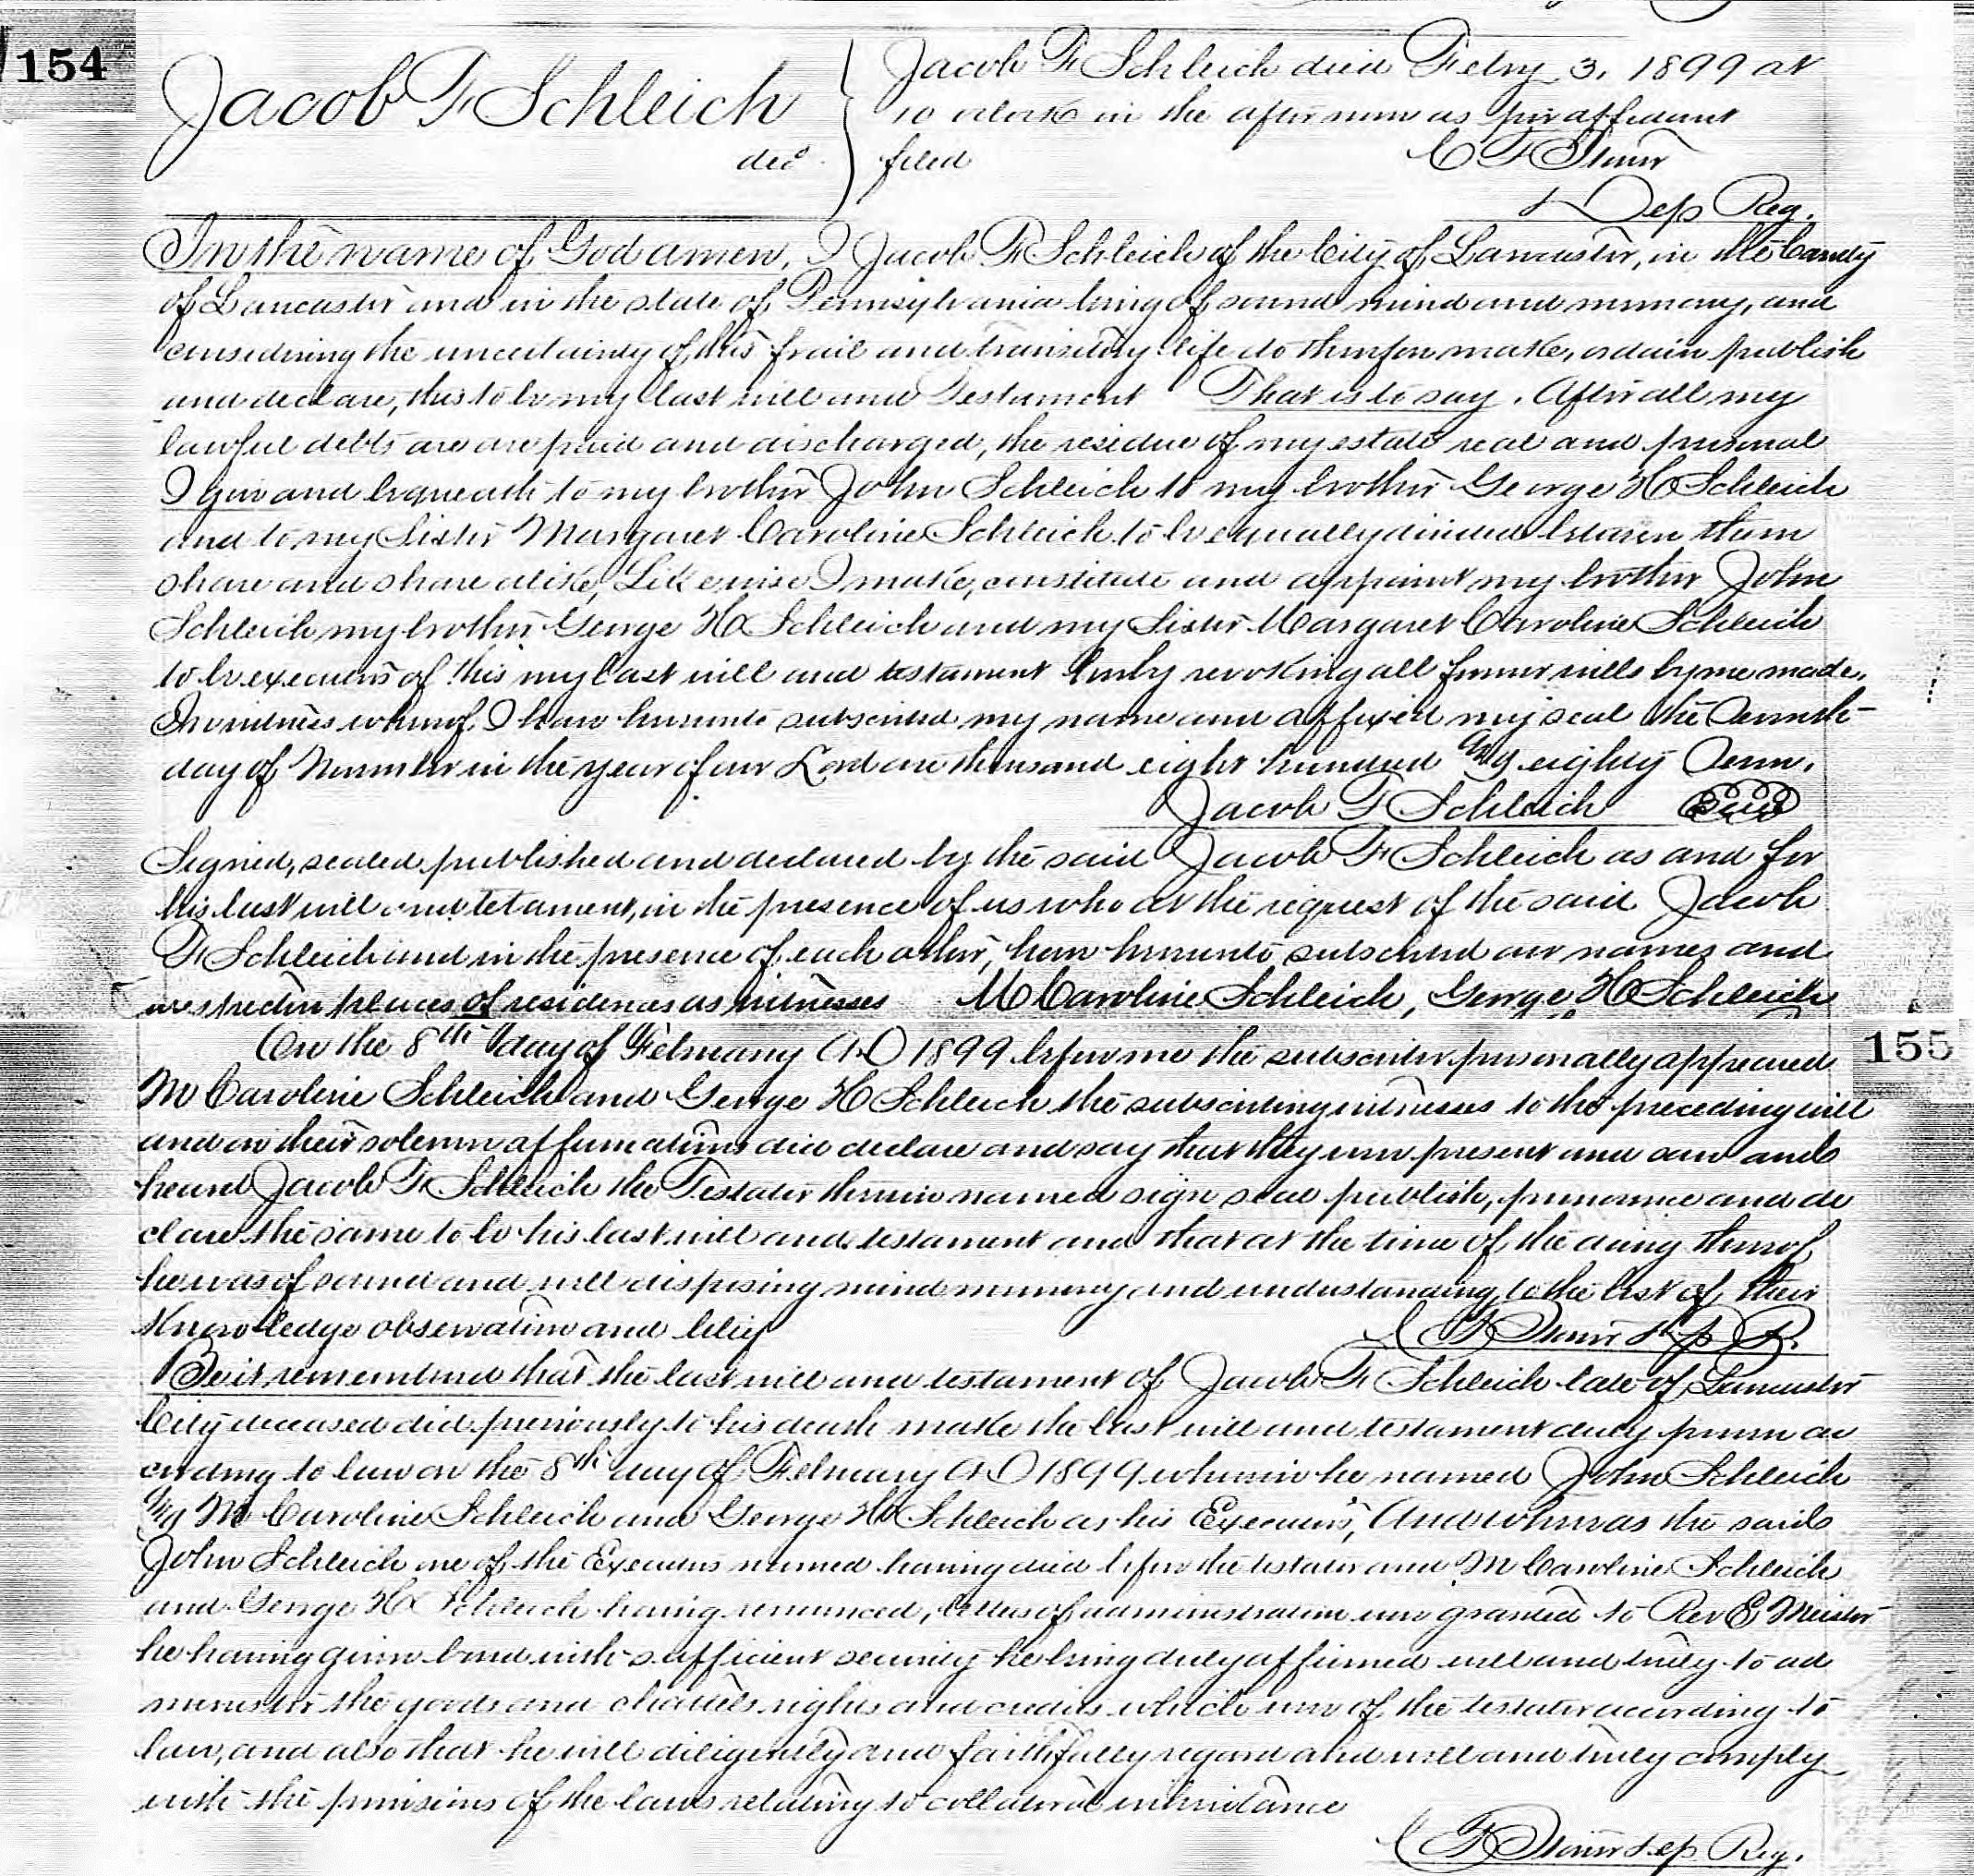 154
Jacob F Schleich
decd
Jacob F Schleich died Febry 3, 1899 at
10 oclock in the afternoon as per affidavit
filed
C F
Dep Reg.
In the name of God amen, I Jacob F Schleich of the City of Lancaster, in the County
of Lancaster and in the state of Pennsylvania being of sound mind and memory, and
considering the uncertainty of this frail and transitory life do therefore make, ordain publish
and declare, this to be my last will and Testament That is to say. After all my
lawful debts are are paid and discharged, the residue of my estate real and personal
I give and bequeath to my brother John Schleich to my brother George H Schleich
and to my Sister Margaret Caroline Schleich to be equally divided between them
share and share alike, Likewise I make, constitute and appoint my brother John
Schleich my brother George H Schleich and my Sister Margaret Caroline Schleich
to be executors of this my last will and testament hereby revoking all former wills by me made.
In witness whereof, I have hereunto subscribed my name and affixed my seal the Seventh
day of November in the year of our Lord one thousand eight hundred and eighty Seven.
Jacob F Schleich Seal
Signed, sealed published and declared by the said Jacob F Schleich as and for
his last will and tetament, in the presence of us who at the request of the said Jacob
F Schleich and in the presence of each other, have hereunto subscribed our names and
respective places of residences as witnesses M Caroline Schleich, George H Schleich
155
On the 8th day of February AD 1899 before me the subscriber personally appeared
M Caroline Schleich and George H Schleich the subscribing witnesses to the preceding will
and on their solemn affirmations did declare and say that they were present and saw and
heard Jacob F Schleich the Testator therein named sign seal publish, pronounce and de
clare the same to be his last will and testament and that at the time of the doing thereof
he was of sound and well disposing mind memory and understanding to the best of their
Knowledge observation and belief
C F Dep R.
Be it remembered that the last will and testament of Jacob F Schleich late of Lancaster
City deceased did previously to his death make the last will and testament duly proven ac
cording to law on the 8th day of February AD 1899 wherein he named John Schleich
M Caroline Schleich and George H Schleich as his Executors, And whereas the said
John Schleich one of the Executors named having died before the testator and M Caroline Schleich
and George H Schleich having renounced, letters of administration were granted to Rev E Meister
he having given bond with sufficient security he being duly affirmed well and truly to ad
minister the goods and chattels rights and credits which were of the testator according to
law, and also that he will diligently and faithfully regard and well and truly comply
with the provisions of the laws relating to collateral inheritance
C F Dep Reg.